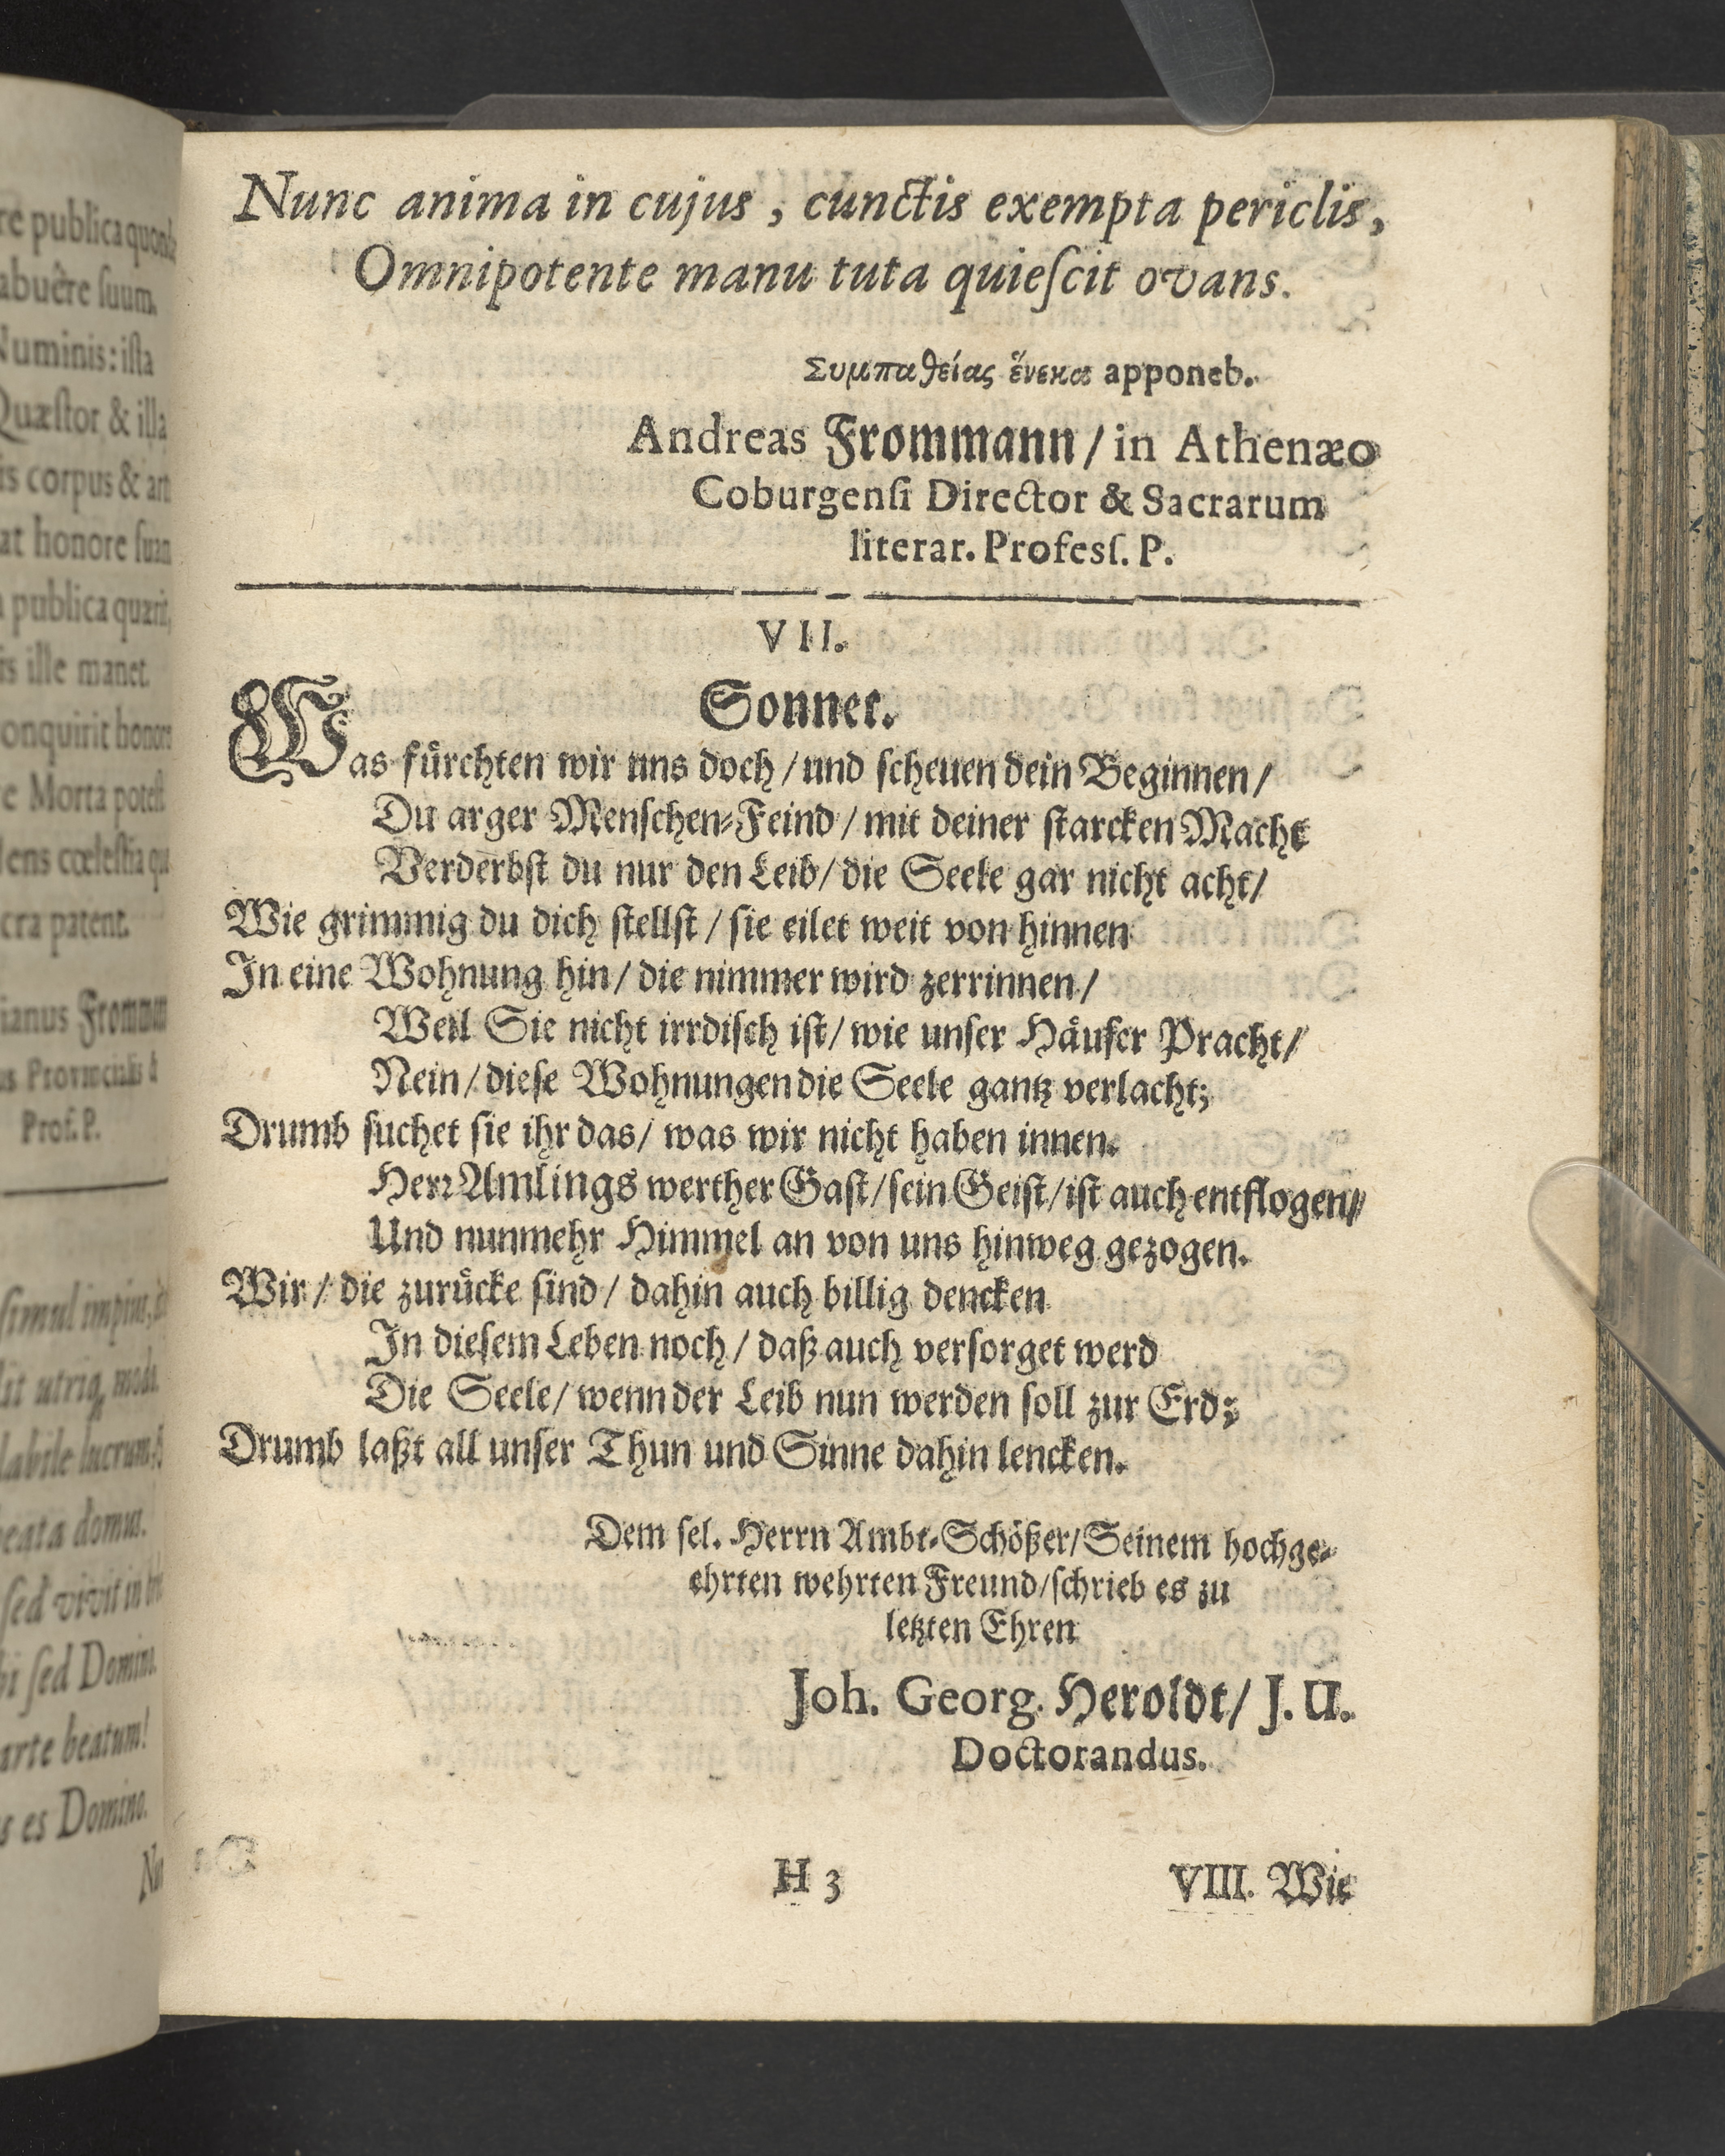 re publica
abuêre ſuum,
Numinis: iſta
Quæſtor & illa
is corpus & art
at honore ſuam
publica quærit,
is ille manet.
onquirit honore
e Morta poteſt
lens cœleſtia qu
cra patent.
ianus Frommann
us Provincialis &
Prof. P.
ſimul impius,
labile lucrum,
beata domus.
ſed vivit in
bi ſed Domino.
arte beatum!
s es Domino.
Nu
Nunc anima in cujus, cunctis exempta periclis,
Omnipotente manu tuta quieſcit ovans.
Συμπαθείας ἕνεκα apponeb.
Andreas Frommann/ in Athenæo
Coburgenſi Director & Sacrarum
literar. Profesſ. P.
VII.
Sonnet.
Was fuͤrchten wir uns doch/ und ſcheuen dein Beginnen/
Du arger Menſchen-Feind/ mit deiner ſtarcken Macht
Verderbſt du nur den Leib/ die Seele gar nicht acht/
Wie grimmig du dich ſtellſt/ ſie eilet weit von hinnen
In eine Wohnung hin/ die nimmer wird zerrinnen/
Weil Sie nicht irrdiſch iſt/ wie unſer Haͤuſer Pracht/
Nein/ dieſe Wohnungen die Seele gantz verlacht;
Drumb ſuchet ſie ihr das/ was wir nicht haben innen.
Herꝛ Amlings werther Gaſt/ ſein Geiſt/ iſt auch entflogen/
Und nunmehr Himmel an von uns hinweg gezogen.
Wir/ die zuruͤcke ſind/ dahin auch billig dencken
In dieſem Leben noch/ daß auch verſorget werd
Die Seele/ wenn der Leib nun werden ſoll zur Erd;
Drumb laßt all unſer Thun und Sinne dahin lencken.
Dem ſel. Herrn Ambt-Schößer/ Seinem hochge-
ehrten wehrten Freund/ ſchrieb es zu
letzten Ehren
Joh. Georg. Heroldt/ J. U.
Doctorandus.
H 3
VIII. Wie